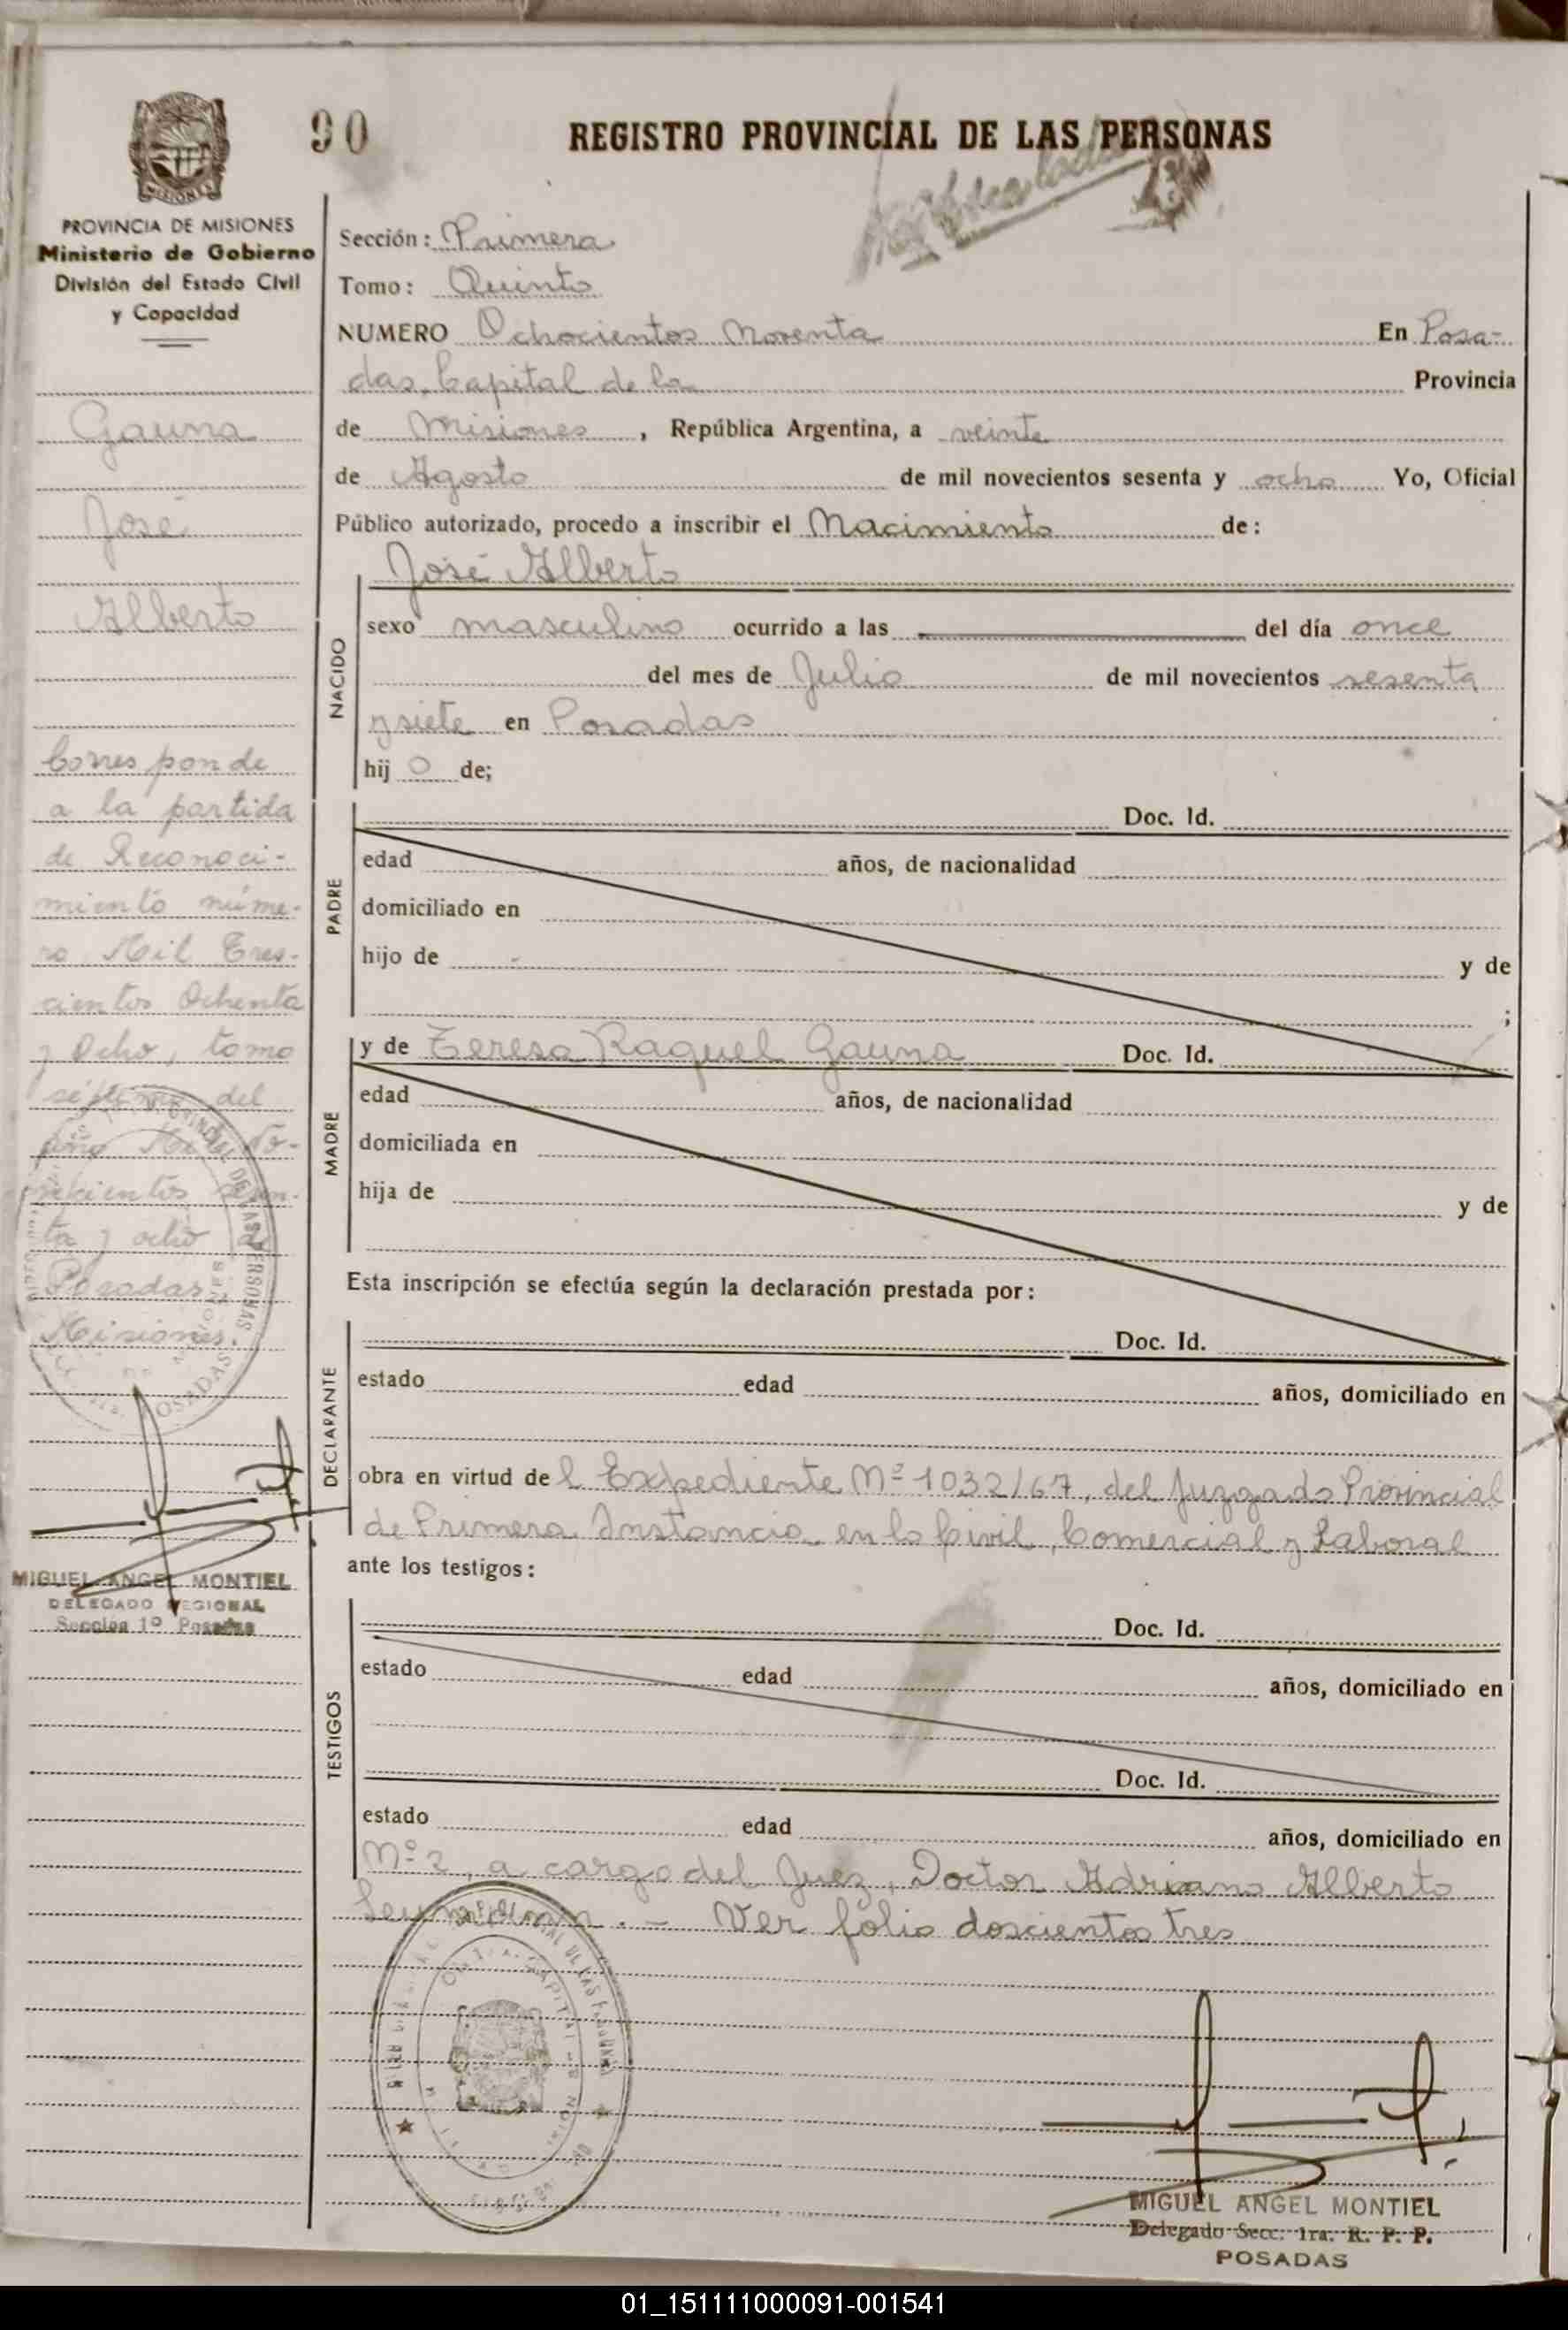 90
REGISTRO PROVINCIAL DE LAS PERSONAS
MISIONES
PROVINCIA DE MISIONES
Ministerio de Gobierno
División del Estado Civil
y Capacidad
Gauna
José
Alberto
Corresponde
a la partida
de Reconoci-
miento núme-
ro Mil Tres-
cientos Ochenta
y Ocho, tomo
séptimo del
año Mil No-
vecientos sesen-
ta y ocho
Posadas
Misiones.
MIGUEL ANGEL MONTIEL
DELEGADO REGIONAL
Sección 1º Posadas
Sección: Primera
Tomo: Quinto
NUMERO Ochocientos Noventa En Posa-
das, Capital de la Provincia
de Misiones, República Argentina, a veinte
de Agosto de mil novecientos sesenta y ocho Yo, Oficial
Público autorizado, procedo a inscribir el Nacimiento de:
José Alberto
NACIDO
sexo masculino ocurrido a las del día once
del mes de Julio de mil novecientos sesenta
y siete en Posadas
hij o de;
PADRE
Doc. Id.
edad años, de nacionalidad
domiciliado en
hijo de y de
;
MADRE
y de Teresa Raquel Gauna Doc. Id.
edad años, de nacionalidad
domiciliada en
hija de y de
Esta inscripción se efectúa según la declaración prestada por:
DECLARANTE
Doc. Id.
estado edad años, domiciliado en
obra en virtud de l Expediente Nº 1032/67, del Juzgado Provincial
de Primera Instancia en lo Civil, Comercial y Laboral
ante los testigos:
TESTIGOS
Doc. Id.
estado edad años, domiciliado en
Doc. Id.
estado edad años, domiciliado en
Nº 2, a cargo del Juez, Doctor Adriano Alberto
. - Ver folio doscientos tres
MIGUEL ANGEL MONTIEL
Delegado Secc. 1ra. R. P. P.
POSADAS
01_151111000091-001541